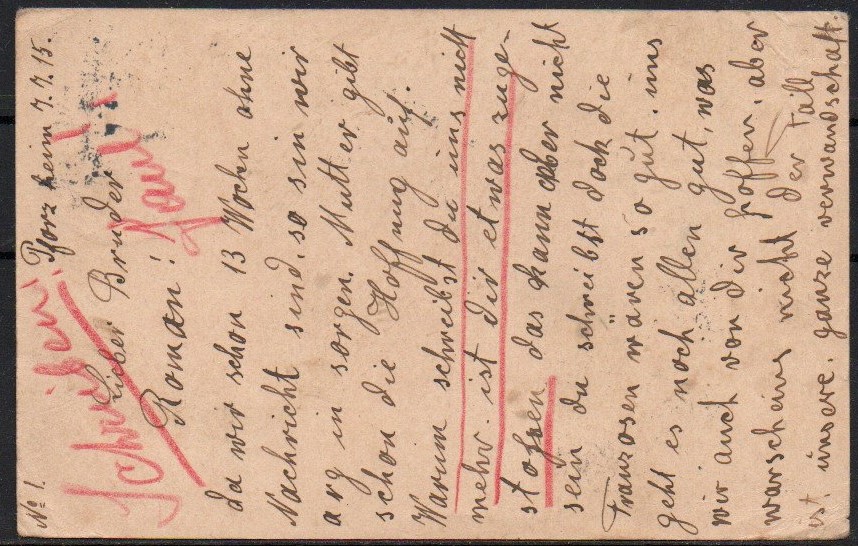 No 1. Pforzheim 7.7.15.
Schreiben!
Lieber Bruder
Roman!
da wir schon 13 Wochen ohne
Nachricht sind, so sin wir
arg in sorgen. Mutter gibt
schon die Hoffnung auf.
Warum schreibst du uns nicht
mehr. ist dir etwas zuge-
stoßen, das kann aber nicht
sein du schreibst doch die
Franzosen wären so gut. uns
geht es noch allen gut, was
wir auch von dir hoffen, aber
warscheins nicht der Fall
ist. unsere ganze verwandschaft.